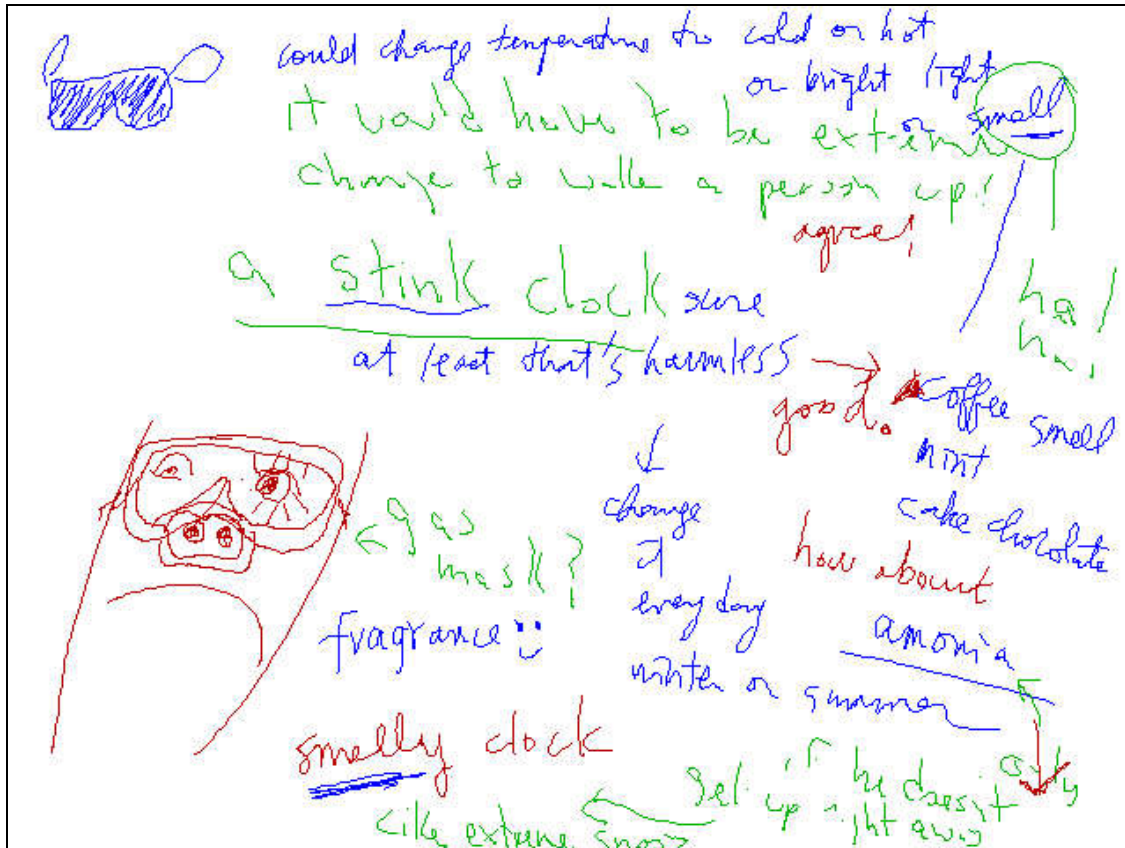 could change temperature to cold or hot
or bright light
or smell
it would have to be extreme
change to wake a person up!
agree!
a stink clock sure
ha! ha!
at least that's harmless
good.
coffee smell
mint
cake chocolate
change
it
every day
winter or summer
how about
amonia
gas
mask?
fragrance
smelly clock
only
if he doesn't
get up right away
like extreme snooz